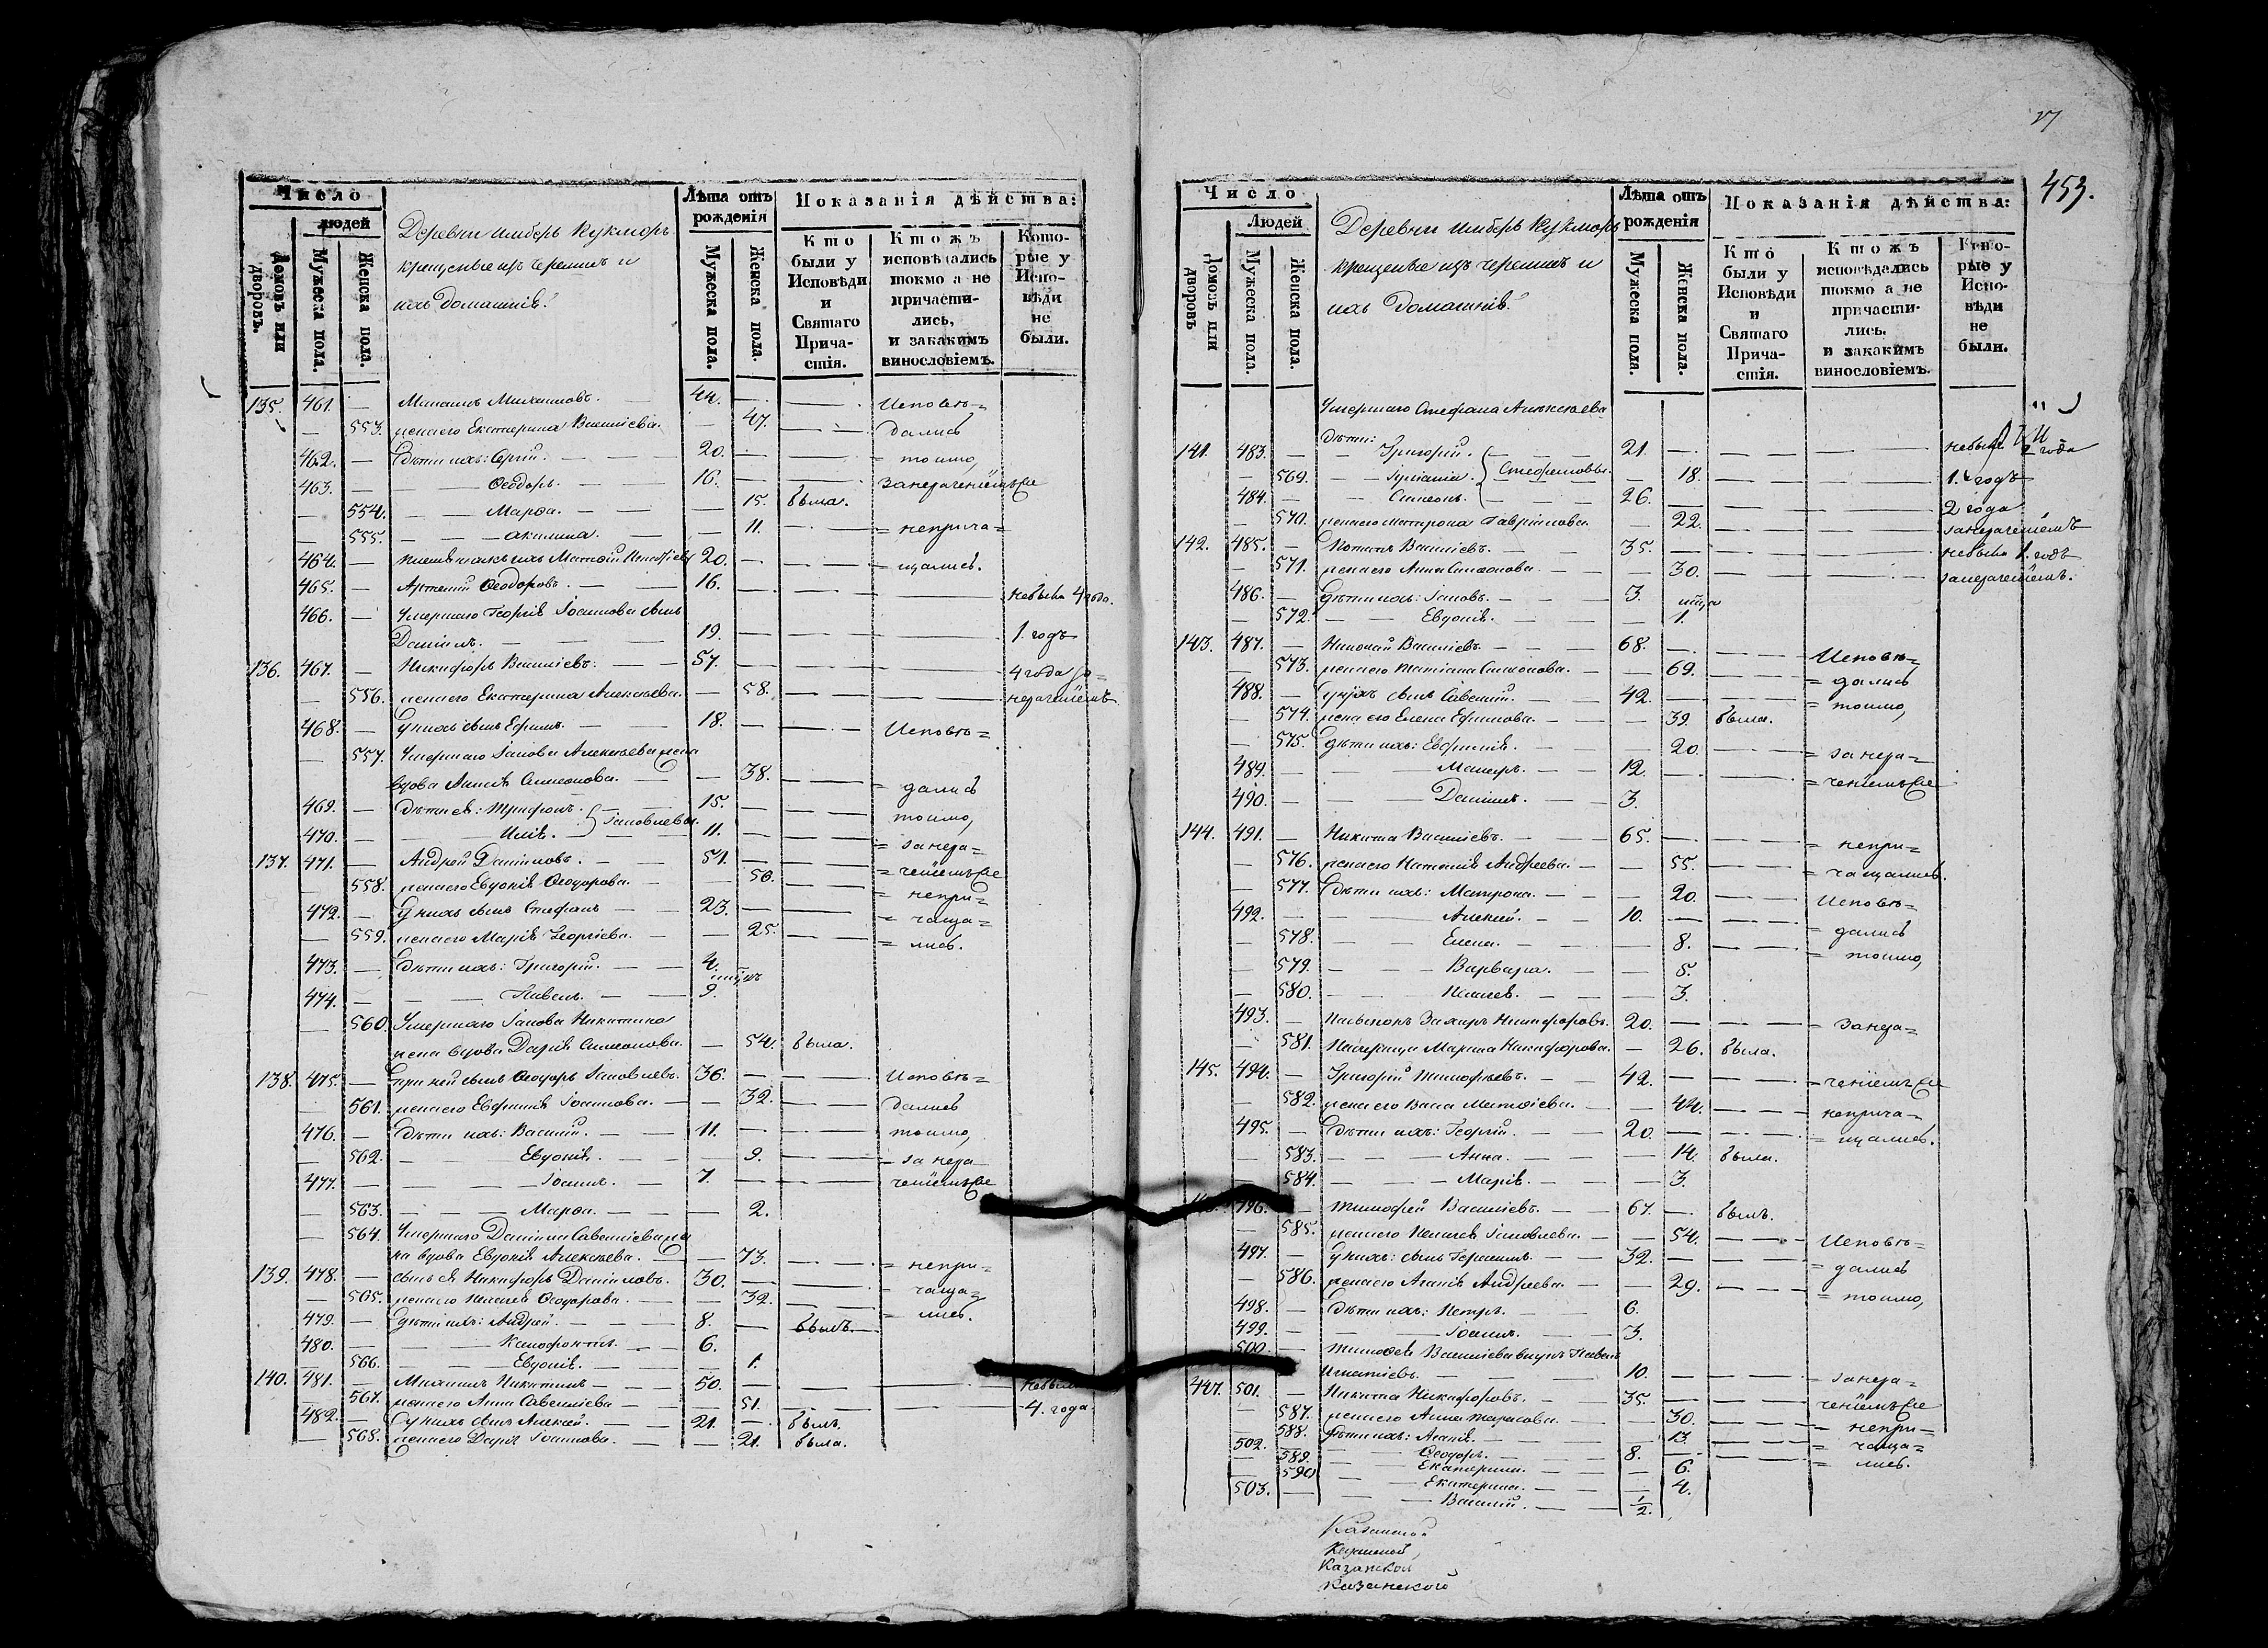 Число
людей
Домовъ или дворовъ.
Мужеска пола.
Женска пола.
Деревни Кукморъ
крещеные изъ черемисъ и
ихъ домашніе.
Лѣта отъ рожденія
Мужеска пола.
Женска пола.
Показанія дѣйства:
Кто были у Исповѣди и Святаго Причастія.
Ктожъ исповѣдались токмо а не причастились, и закакимъ винословіемъ.
Которые у Исповѣди не были.
135. 461. — Михаиловъ. — 44. Исповѣ=
553. жена его Екатерина Василіева. — 47. дались
462. — дѣти ихъ: Сергій. — 20. = токмо,
463. — Ѳеодоръ. — 16. занераченіемъ
554. — Марѳа. — 15. была.
555. — Акилина. — 11. = неприча=
464. — ихъ Матѳей 20. = щались.
465. — Артемій Ѳеодоровъ. — 16. небылъ 4 года.
466. — Умершаго Георгія Іоаннова сынъ
Даніилъ. — 19. 1. годъ
136. 467. — Никифоръ Василіевъ. — 57. 4 года за=
556. жена его Екатерина Алексѣева. — 58. нераченіемъ
468. — У нихъ сынъ Ефимъ. — 18. Исповѣ=
557. Умершаго Іакова Алексѣева жена
вдова Симеонова. — 38. = дались
469. — Дѣти ея: Трифонъ. — Іаковлевы. 15. токмо,
470. — Илія. — 11. = занера=
137. 471. — Андрей Даниловъ. — 51. = ченіемъ
558. жена его Евдокія Ѳеодорова. — 50. = непри=
472. — У нихъ сынъ Стефанъ — 23. = чаща=
559. жена его Марія Георгіева. — 25. = лись.
473. — Дѣти ихъ: Григорій. — 4.
474. — Павелъ. — 9.
560. Умершаго Іакова Никитина
жена вдова Дарія Симеонова. — 54. была.
138. 475. — При ней сынъ Ѳеодоръ Іаковлевъ. 36. Исповѣ=
561. жена его Евфимія Іоаннова. — 32. дались
476. — Дѣти ихъ: Василій. — 11. токмо,
562. — Евдокія. — 9. = за нера
477. — Іоаннъ. — 7. ченіемъ
563. — Марѳа. — 2.
564. Умершаго Даніила Савеліева же
на вдова Евдокія Алексѣева. — 73. = непри=
139. 478. — сынъ ея Никифоръ Даниловъ. 30. = чаща=
565. жена его Ѳеодорова. — 32. = лись.
479. — Дѣти ихъ: Андрей. — 8. былъ.
480. — Ксенофонтъ. — 6.
566. — Евдокія. — 1.
140. 481. — Михаилъ Никитинъ — 50. небылъ
567. жена его Анна Савеліева — 51. 4. года
482. — У нихъ сынъ Алексѣй. — 21. былъ.
568. жена его Дарія Іоаннова. — 21. была.
453.
Число
Людей
Домовъ или дворовъ
Мужеска пола.
Женска пола.
Деревни Кукморъ
крещеные изъ черемисъ и
ихъ домашніе.
Лѣта отъ рожденія
Мужеска пола.
Женска пола.
Показанія дѣйства:
Кто были у Исповѣди и Святаго Причастія.
Ктожъ исповѣдались токмо а не причастились. и закакимъ винословіемъ.
Которые у Исповѣди не были.
Умершаго Стефана Алексѣева
дѣти:
141. 483. — Григорій. — 21. небылъ 2 года
569. — Іуліанія. Стефановы. — 18. 1. годъ
484. — Симеонъ. — 26. 2 года
570. жена его Матрона Гаврилова. — 22. занераченіемъ
142. 485. — Потапъ Василіевъ. — 35. небылъ 1. годъ
571. жена его Анна Симеонова. — 30. занераченіемъ.
486. — Дѣти ихъ: Іаковъ. — 3.
572. — Евдокія. — 1.
143. 487. — Николай Василіевъ. — 68. Исповѣ=
573. жена его Татіана Симеонова. — 69. = дались
488. — у нихъ сынъ Савелій. — 42. = токмо,
574. жена его Елена Ефимова. — 39. была.
575. дѣти ихъ: Евфимія. — 20. = занера=
489. — Макаръ. — 12. = ченіемъ
490. — Даніилъ. — 3.
144. 491. — Никита Василіевъ. — 65. = непри=
576. жена его Наталія Андреева. — 55. = чащались.
577. Дѣти ихъ: Матрона. — 20. Исповѣ=
492. — Алексѣй. — 10. = дались
578. — Елена. — 8. = токмо,
579. — Варвара. — 5.
580. — 3.
493. — Пасынокъ Захаръ Никифоровъ. 20. = занера=
581. Падчерица Марина Никифорова. — 26. была.
145. 494. — Григорій Тимофѣевъ. — 42. = ченіемъ
582. жена его Васса Матѳіева. — 44. неприча=
495. — Дѣти ихъ: Георгій. — 20. = щались.
583. — Анна. — 14. была.
584. — Марія. — 3.
496. — Тимофей Василіевъ. — 67. былъ.
585. жена его Іаковлева. — 54. Исповѣ=
497. — У нихъ: сынъ Герасимъ. — 32. = дались
586. жена его Агапія Андреева. — 29. = токмо,
498. — Дѣти ихъ: Петръ. — 6.
499. — Іоаннъ. — 3.
500. — Тимоѳея Василіева внукъ Павелъ
Игнатіевъ. — 10. = занера=
147. 501. — Никита Никифоровъ. — 35. ченіемъ
587. жена его Анна Тарасова. — 30. = непри=
588. Дѣти ихъ: Агапія. — 13. = чаща=
502. — Ѳеодоръ. — 8. = лись.
589. — Екатерина. — 6.
590 — Екатерина. — 4.
503. — Василій. — 1/2.
Казанской
Казанской
Казанского